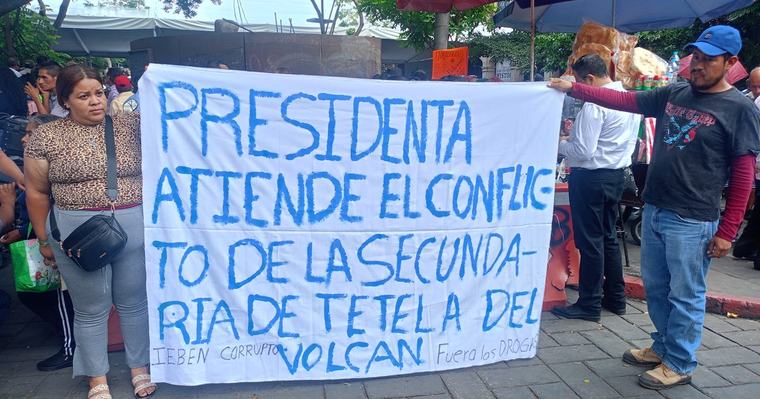 PRESIDENTA
ATIENDE EL CONFLIC-
TO DE LA SECUNDA-
RIA DE TETELA DEL
VOLCAN
IEBEN CORRUPTO
Fuera los DROGA